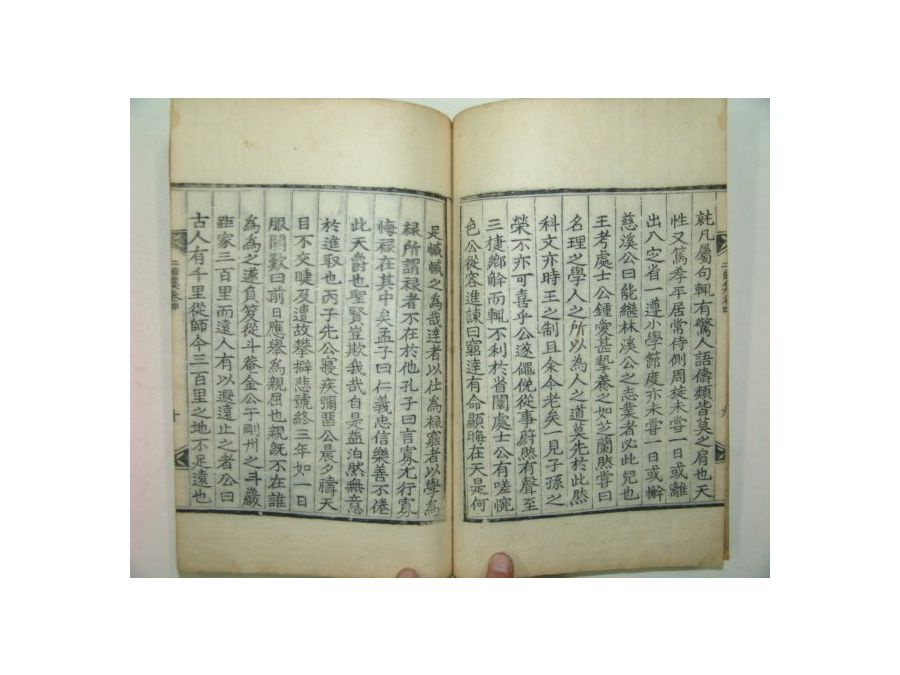 就凡屬句輒有驚人語儔類皆莫之肩也天
性又篤孝平居常侍側周旋未嘗一日或離
出入定省一遵小學節度亦未嘗一日或懈
慈溪公曰能繼林溪公之志業者必此兒也
王考處士公鍾愛甚摯養之如芝蘭然嘗曰
名理之學人之所以為人之道莫先於此然
科文亦時王之制且余今老矣一見子孫之
榮不亦可喜乎公遂僶俛從事蔚然有聲至
三捷鄉解而輒不利於省闈處士公有嗟惋
色公從容進諫曰窮達有命顯晦在天是何
足慽慽之為哉達者以仕為祿窮者以學為
祿所謂祿者不在於他孔子曰言寡尤行寡
悔祿在其中矣孟子曰仁義忠信樂善不倦
此天爵也聖賢豈欺我哉自是益泊然無意
於進取也丙子先公寢疾彌留公晨夕禱天
目不交睫及遭故攀擗悲號終三年如一日
服闋歎曰前日應舉為親屈也親既不在誰
為為之遂負笈從斗庵金公于剛州之斗巖
距家三百里而遠人有以遐遠止之者公曰
古人有千里從師今三百里之地不足遠也